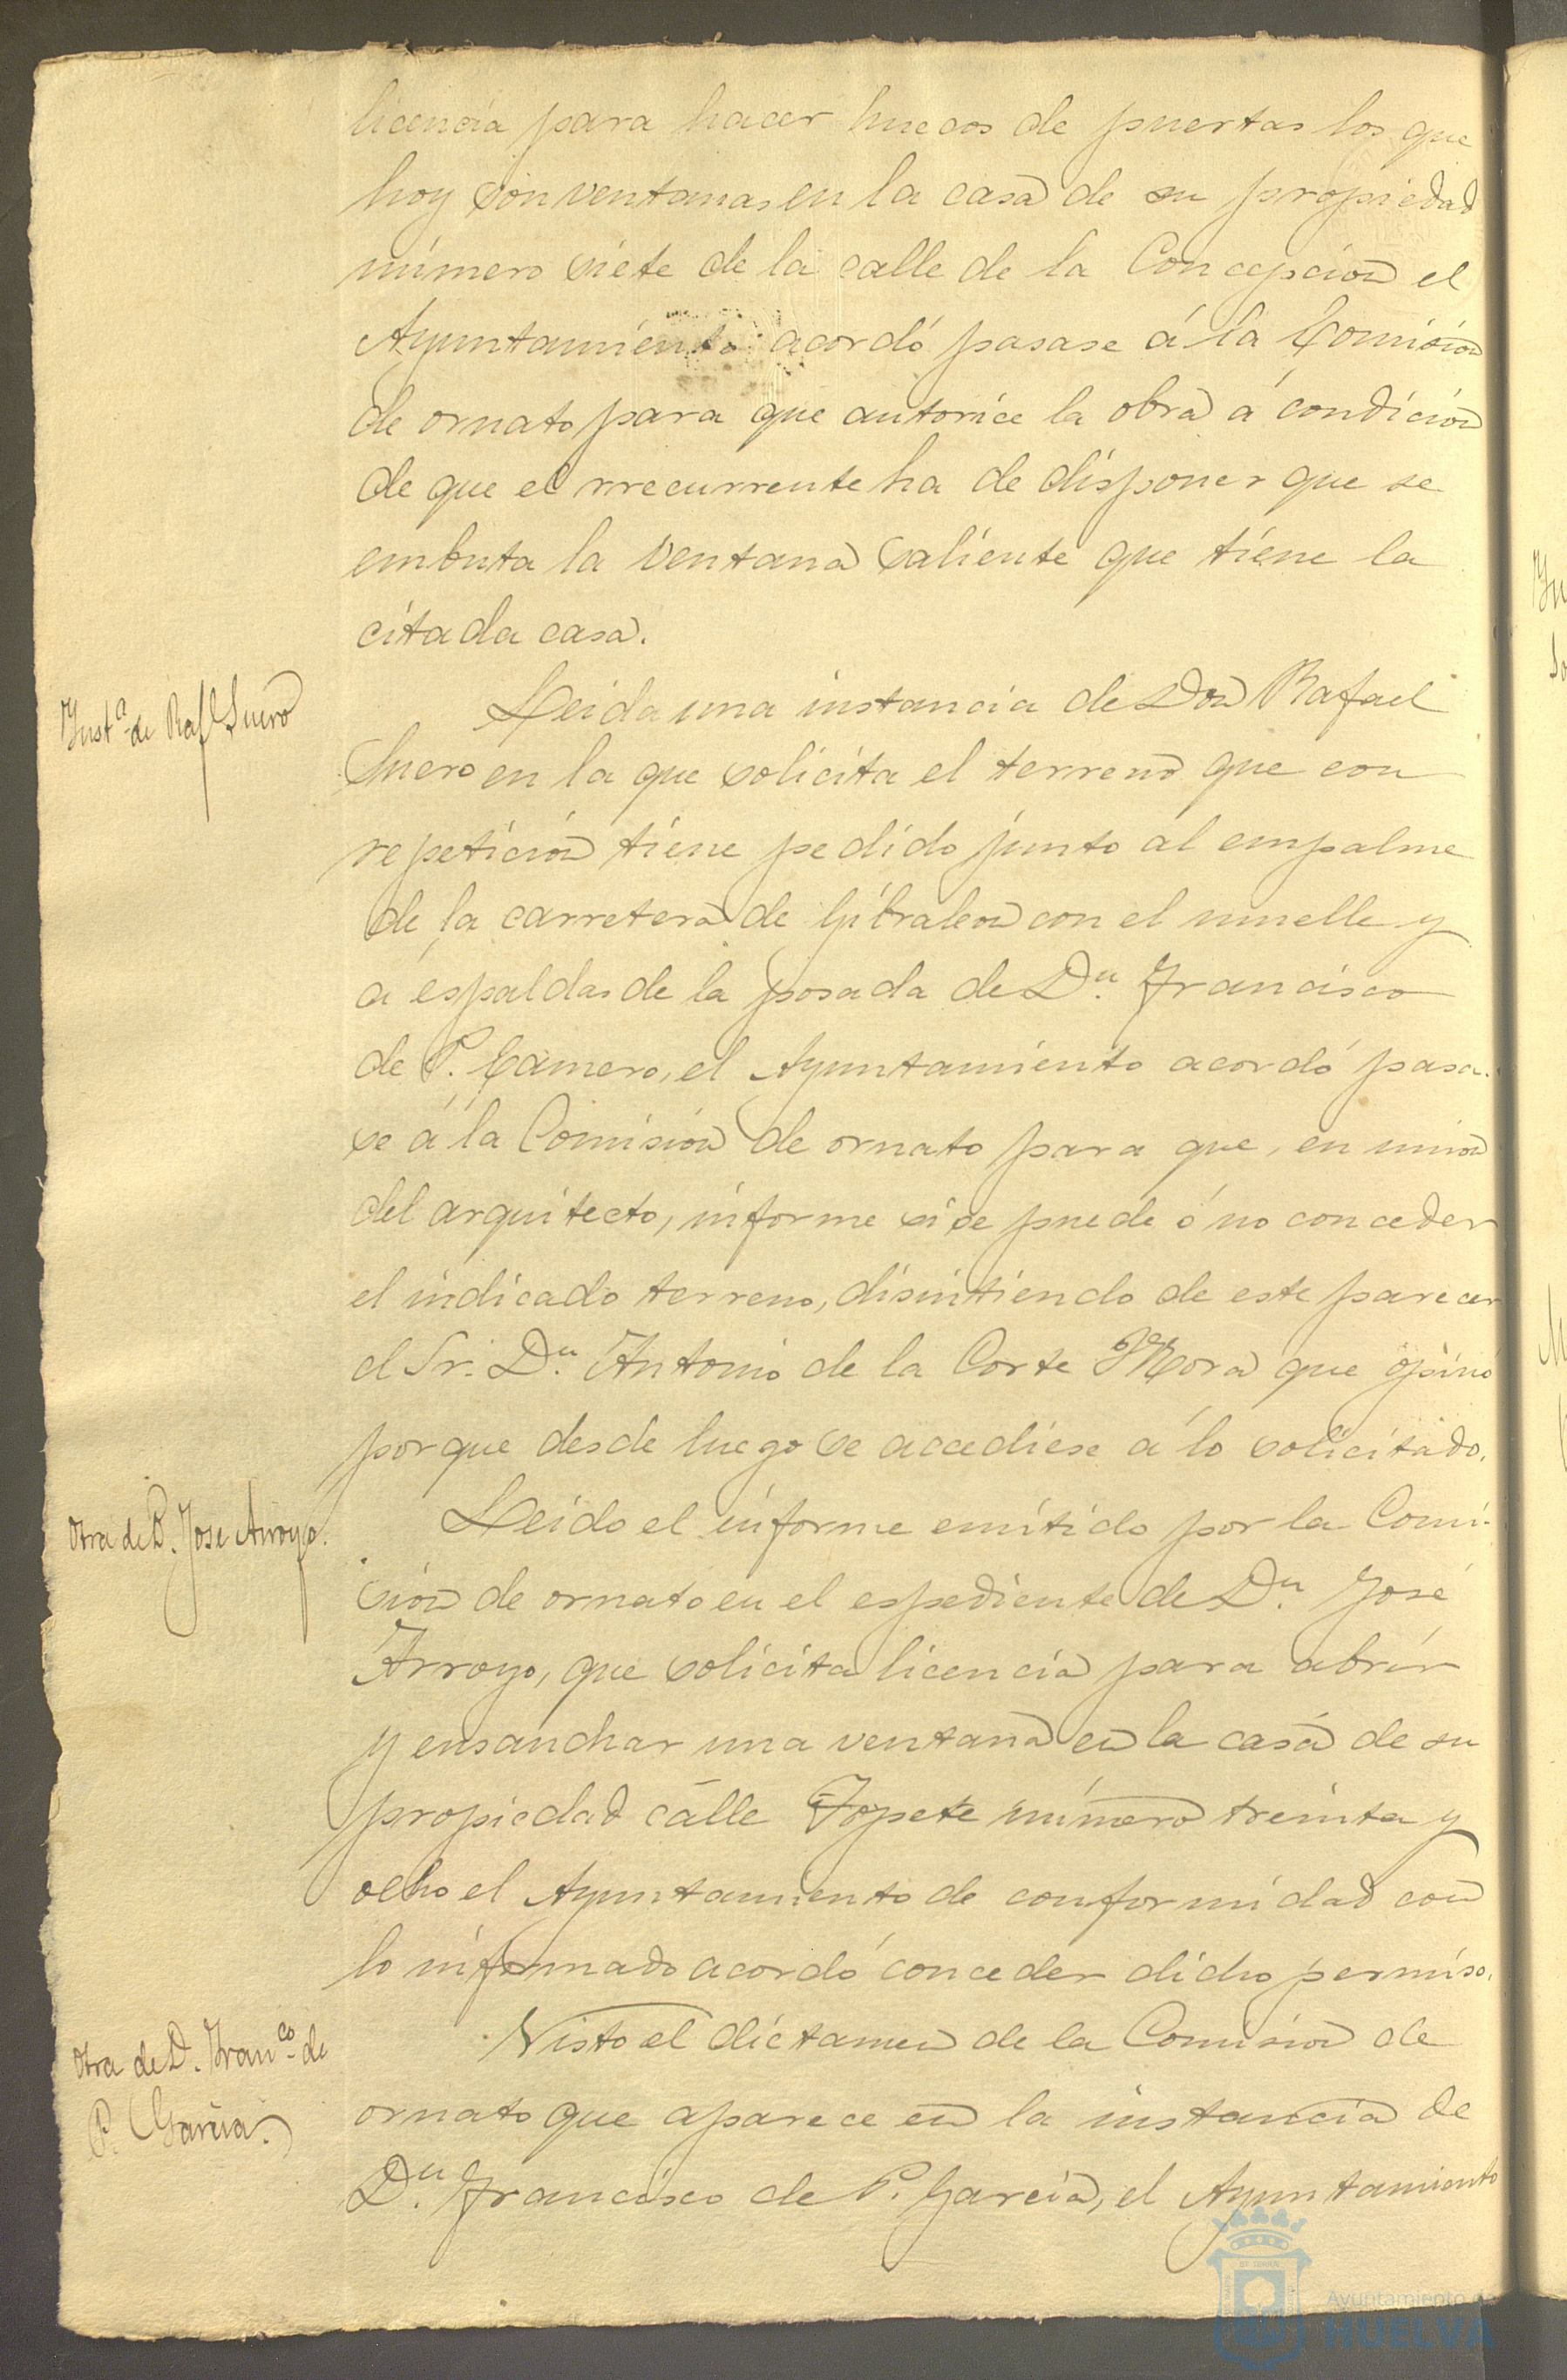 licencia para hacer huecos de puertas los que
hoy son ventanas en la casa de su propiedad
número siete de la calle de la Concepcion el
Ayuntamiento acordó pasase á la Comision
de ornato para que autorice la obra á condicion
de que el rrecurrente ha de disponer que se
embuta la ventana saliente que tiene la
citada casa.
Inst.ª de Raf.l Suero
Leida una instancia de Don Rafael
Suero en la que solicita el terreno que con
repeticion tiene pedido junto al empalme
de la carretera de Gibraleon con el muelle y
á espaldas de la posada de D.n Francisco
de P. Camero, el Ayuntamiento acordó pasa-
se á la Comision de ornato para que, en union
del arquitecto, informe si se puede ó no conceder
el indicado terreno, disintiendo de este parecer
el Sr. D.n Antonio de la Corte Mora que opinó
porque desde luego se accediese á lo solicitado.
Otra de D. Jose Arroyo.
Leido el informe emitido por la Comi-
sion de ornato en el espediente de D.n José
Arroyo, que solicita licencia para abrir
y ensanchar una ventana en la casa de su
propiedad calle Topete número treinta y
ocho el Ayuntamiento de conformidad con
lo informado acordó conceder dicho permiso.
Otra de D. Fran.co de
P. Garcia.
Visto el dictamen de la Comision de
ornato que aparece en la instancia de
D.n Francisco de P. Garcia, el Ayuntamiento
Ayuntamiento de
HUELVA